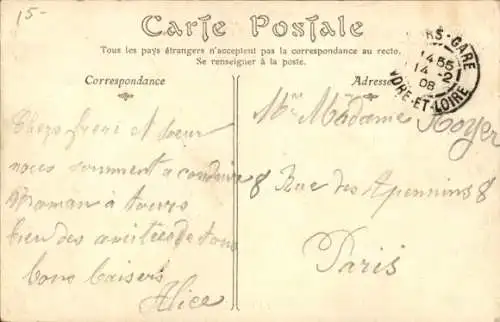 15-
Carte Postale
Tous les pays étrangers n'acceptent pas la correspondance au recto.
Se renseigner à la poste.
Correspondance
Adresse
RS-GARE
14 55
14-2
08
NDRE-ET-LOIRE
Chers frère et soeur
nous sommes a conduire
Maman à tours
bien des amitées de tous
bons baisers
Alice
Mr Madame Royer
8 Rue des Apennins 8
Paris